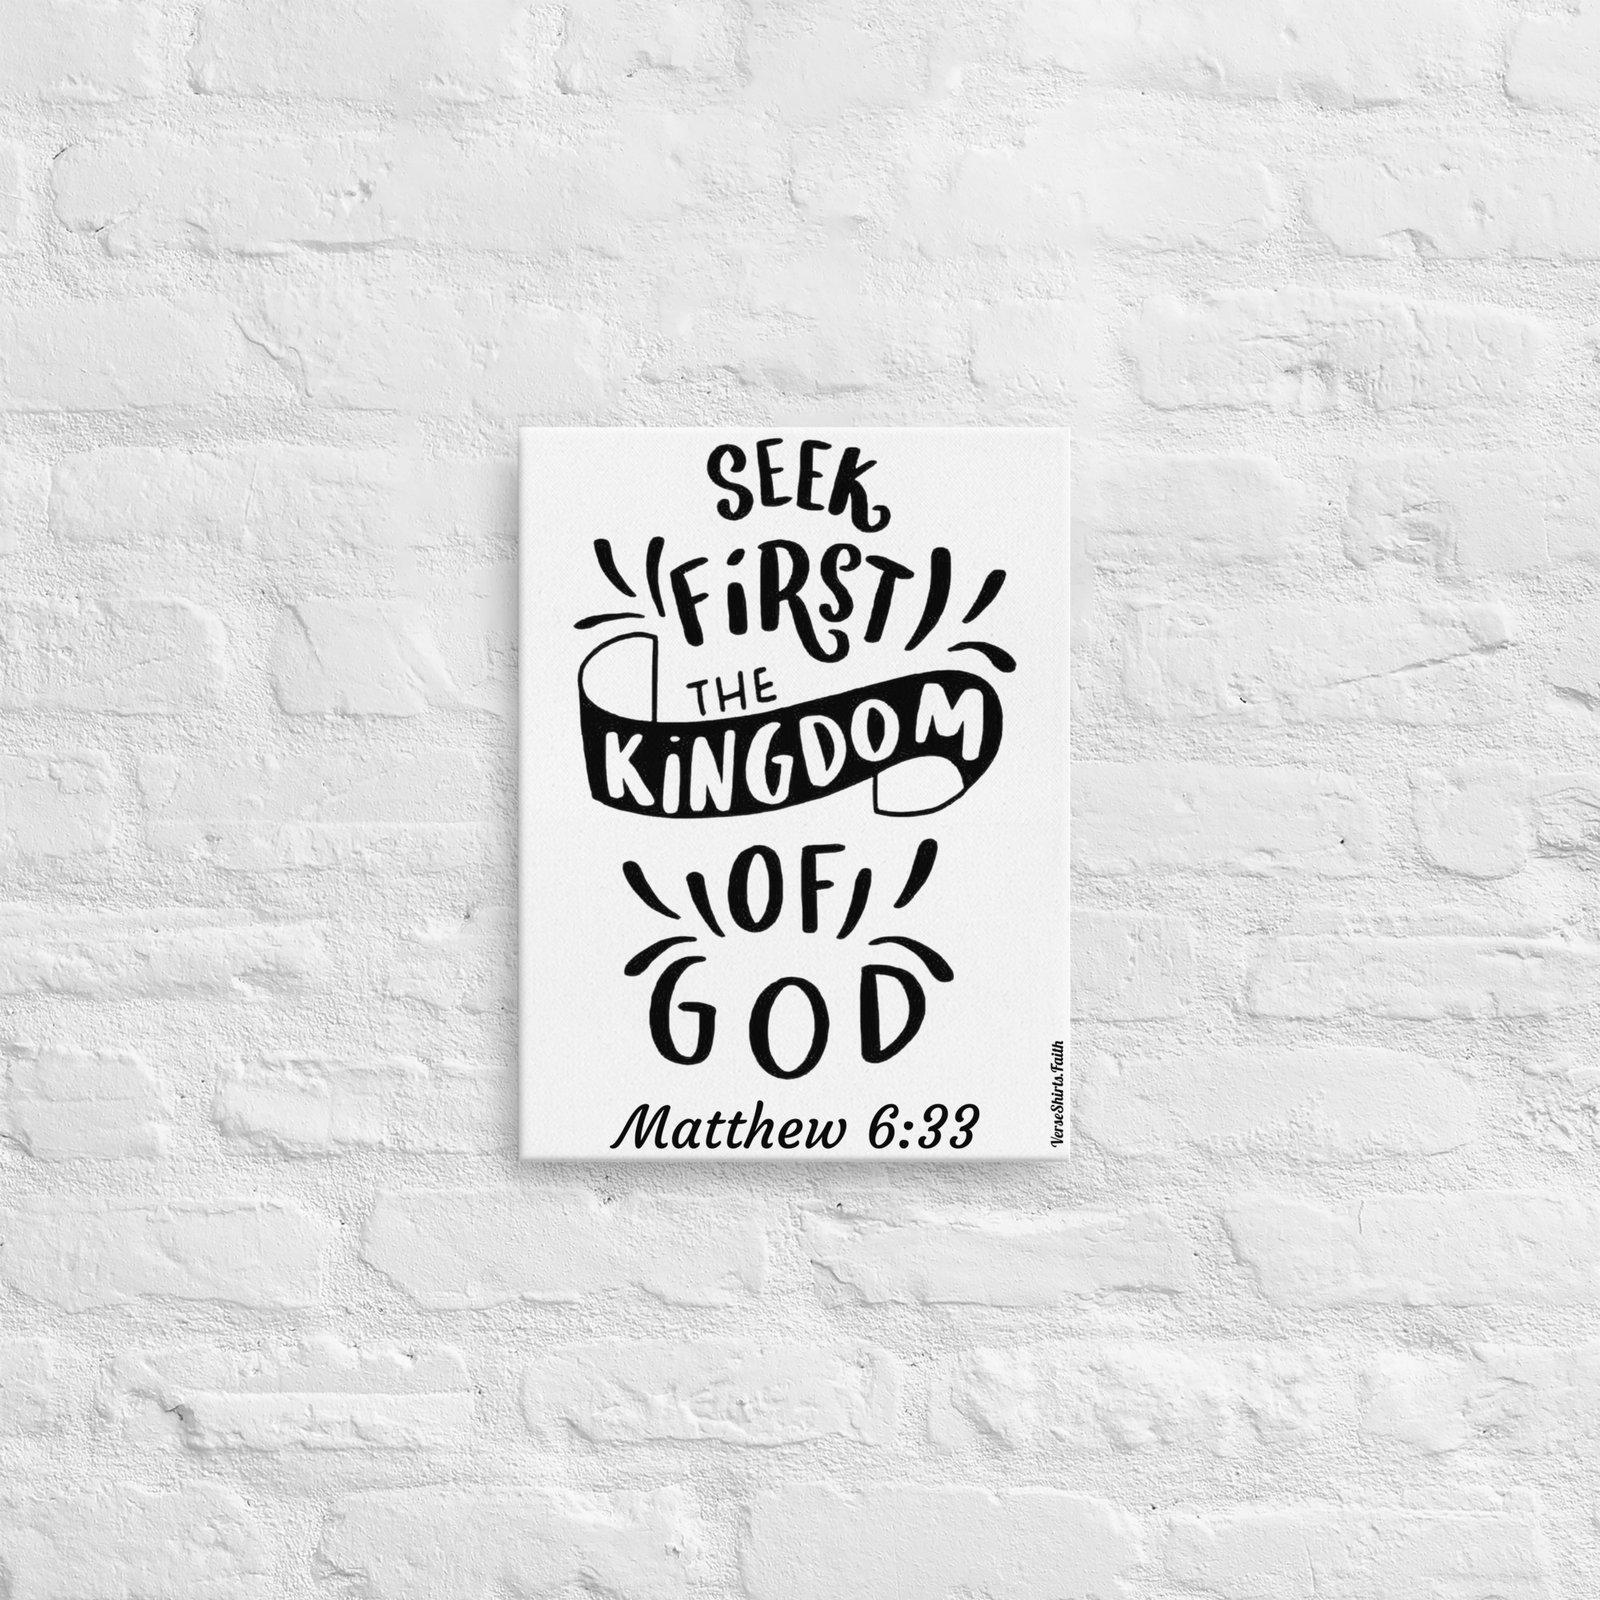 SEEK
FiRST
THE
KiNGDOM
OF
GOD
Matthew 6:33
VerseShirts.Faith